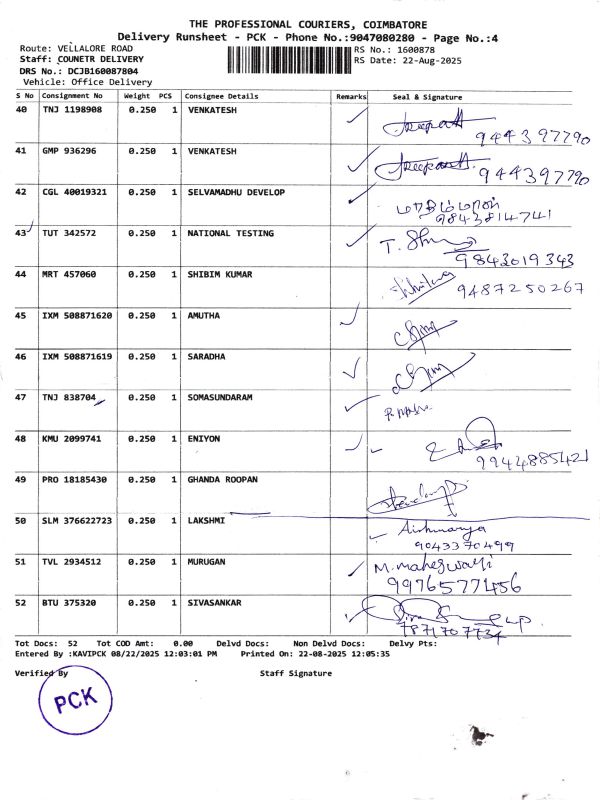 THE PROFESSIONAL COURIERS, COIMBATORE
Delivery Runsheet - PCK - Phone No.:9047080280 - Page No.:4
Route: VELLALORE ROAD
RS No.: 1600878
Staff: COUNETR DELIVERY
RS Date: 22-Aug-2025
DRS No.: DCJB160087804
Vehicle: Office Delivery
S No Consignment No Weight PCS Consignee Details Remarks Seal & Signature
40 TNJ 1198908 0.250 1 VENKATESH
944397790
41 GMP 936296 0.250 1 VENKATESH
944397790
42 CGL 40019321 0.250 1 SELVAMADHU DEVELOP
9843814741
43 TUT 342572 0.250 1 NATIONAL TESTING
9843019343
44 MRT 457060 0.250 1 SHIBIM KUMAR
9487250267
45 IXM 508871620 0.250 1 AMUTHA
46 IXM 508871619 0.250 1 SARADHA
47 TNJ 838704 0.250 1 SOMASUNDARAM
48 KMU 2099741 0.250 1 ENIYON
9944885421
49 PRO 18185430 0.250 1 GHANDA ROOPAN
50 SLM 376622723 0.250 1 LAKSHMI
Aishwarya
9043370499
51 TVL 2934512 0.250 1 MURUGAN
M.maheswari
9976577456
52 BTU 375320 0.250 1 SIVASANKAR
Tot Docs: 52 Tot COD Amt: 0.00 Delvd Docs: Non Delvd Docs: Delvy Pts:
Entered By :KAVIPCK 08/22/2025 12:03:01 PM Printed On: 22-08-2025 12:05:35
Verified By
Staff Signature
PCK